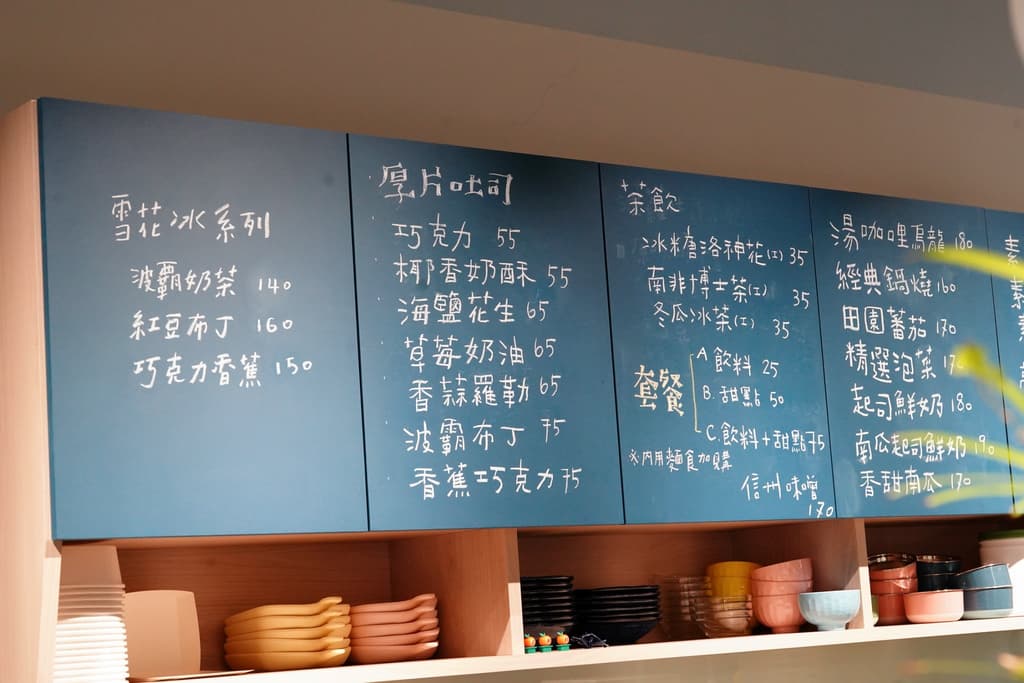 雪花冰系列
波霸奶茶 140
紅豆布丁 160
巧克力香蕉 150
厚片吐司
巧克力 55
椰香奶酥 55
海鹽花生 65
草莓奶油 65
香蒜羅勒 65
波霸布丁 75
香蕉巧克力 75
茶飲
冰糖洛神花(I) 35
南非博士茶(I) 35
冬瓜冰茶(I) 35
套餐
A 飲料 25
B. 甜點 50
C. 飲料+甜點 75
※內用麵食加購
信州味噌
170
湯咖哩烏龍 180
經典鍋燒 160
田園蕃茄 170
精選泡菜 170
起司鮮奶 180
南瓜起司鮮奶 190
香甜南瓜 170
素
素